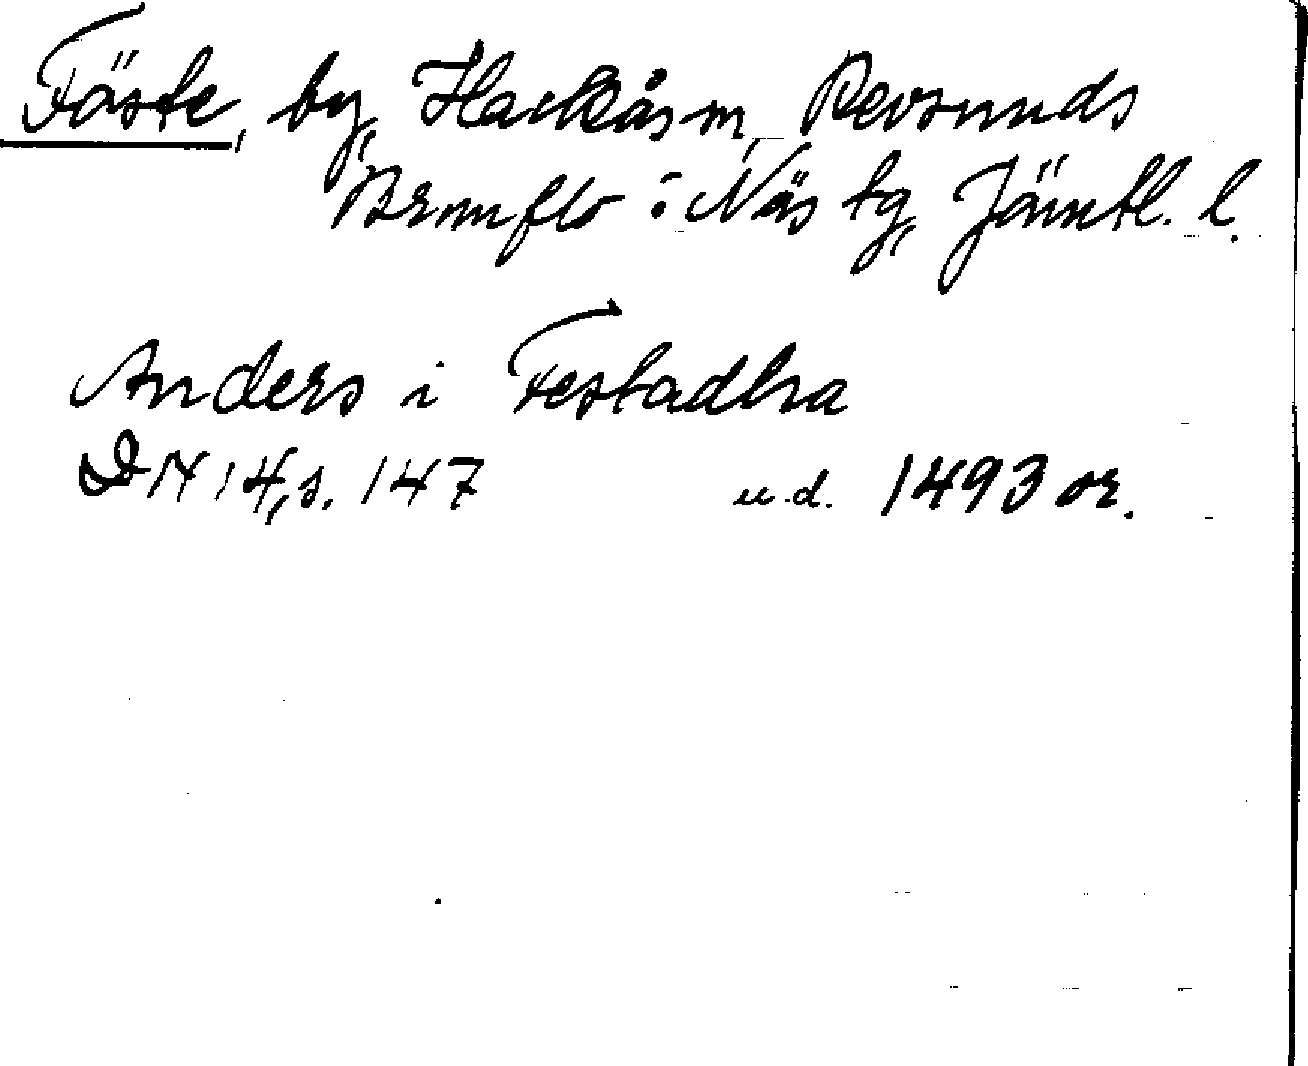 Fäste, by, Hackås sn, Revsunds
Brunflo i Näs tg, Jämtl. l.
Anders i Festadhra
DN 14, s. 147 u.d. 1493 or.